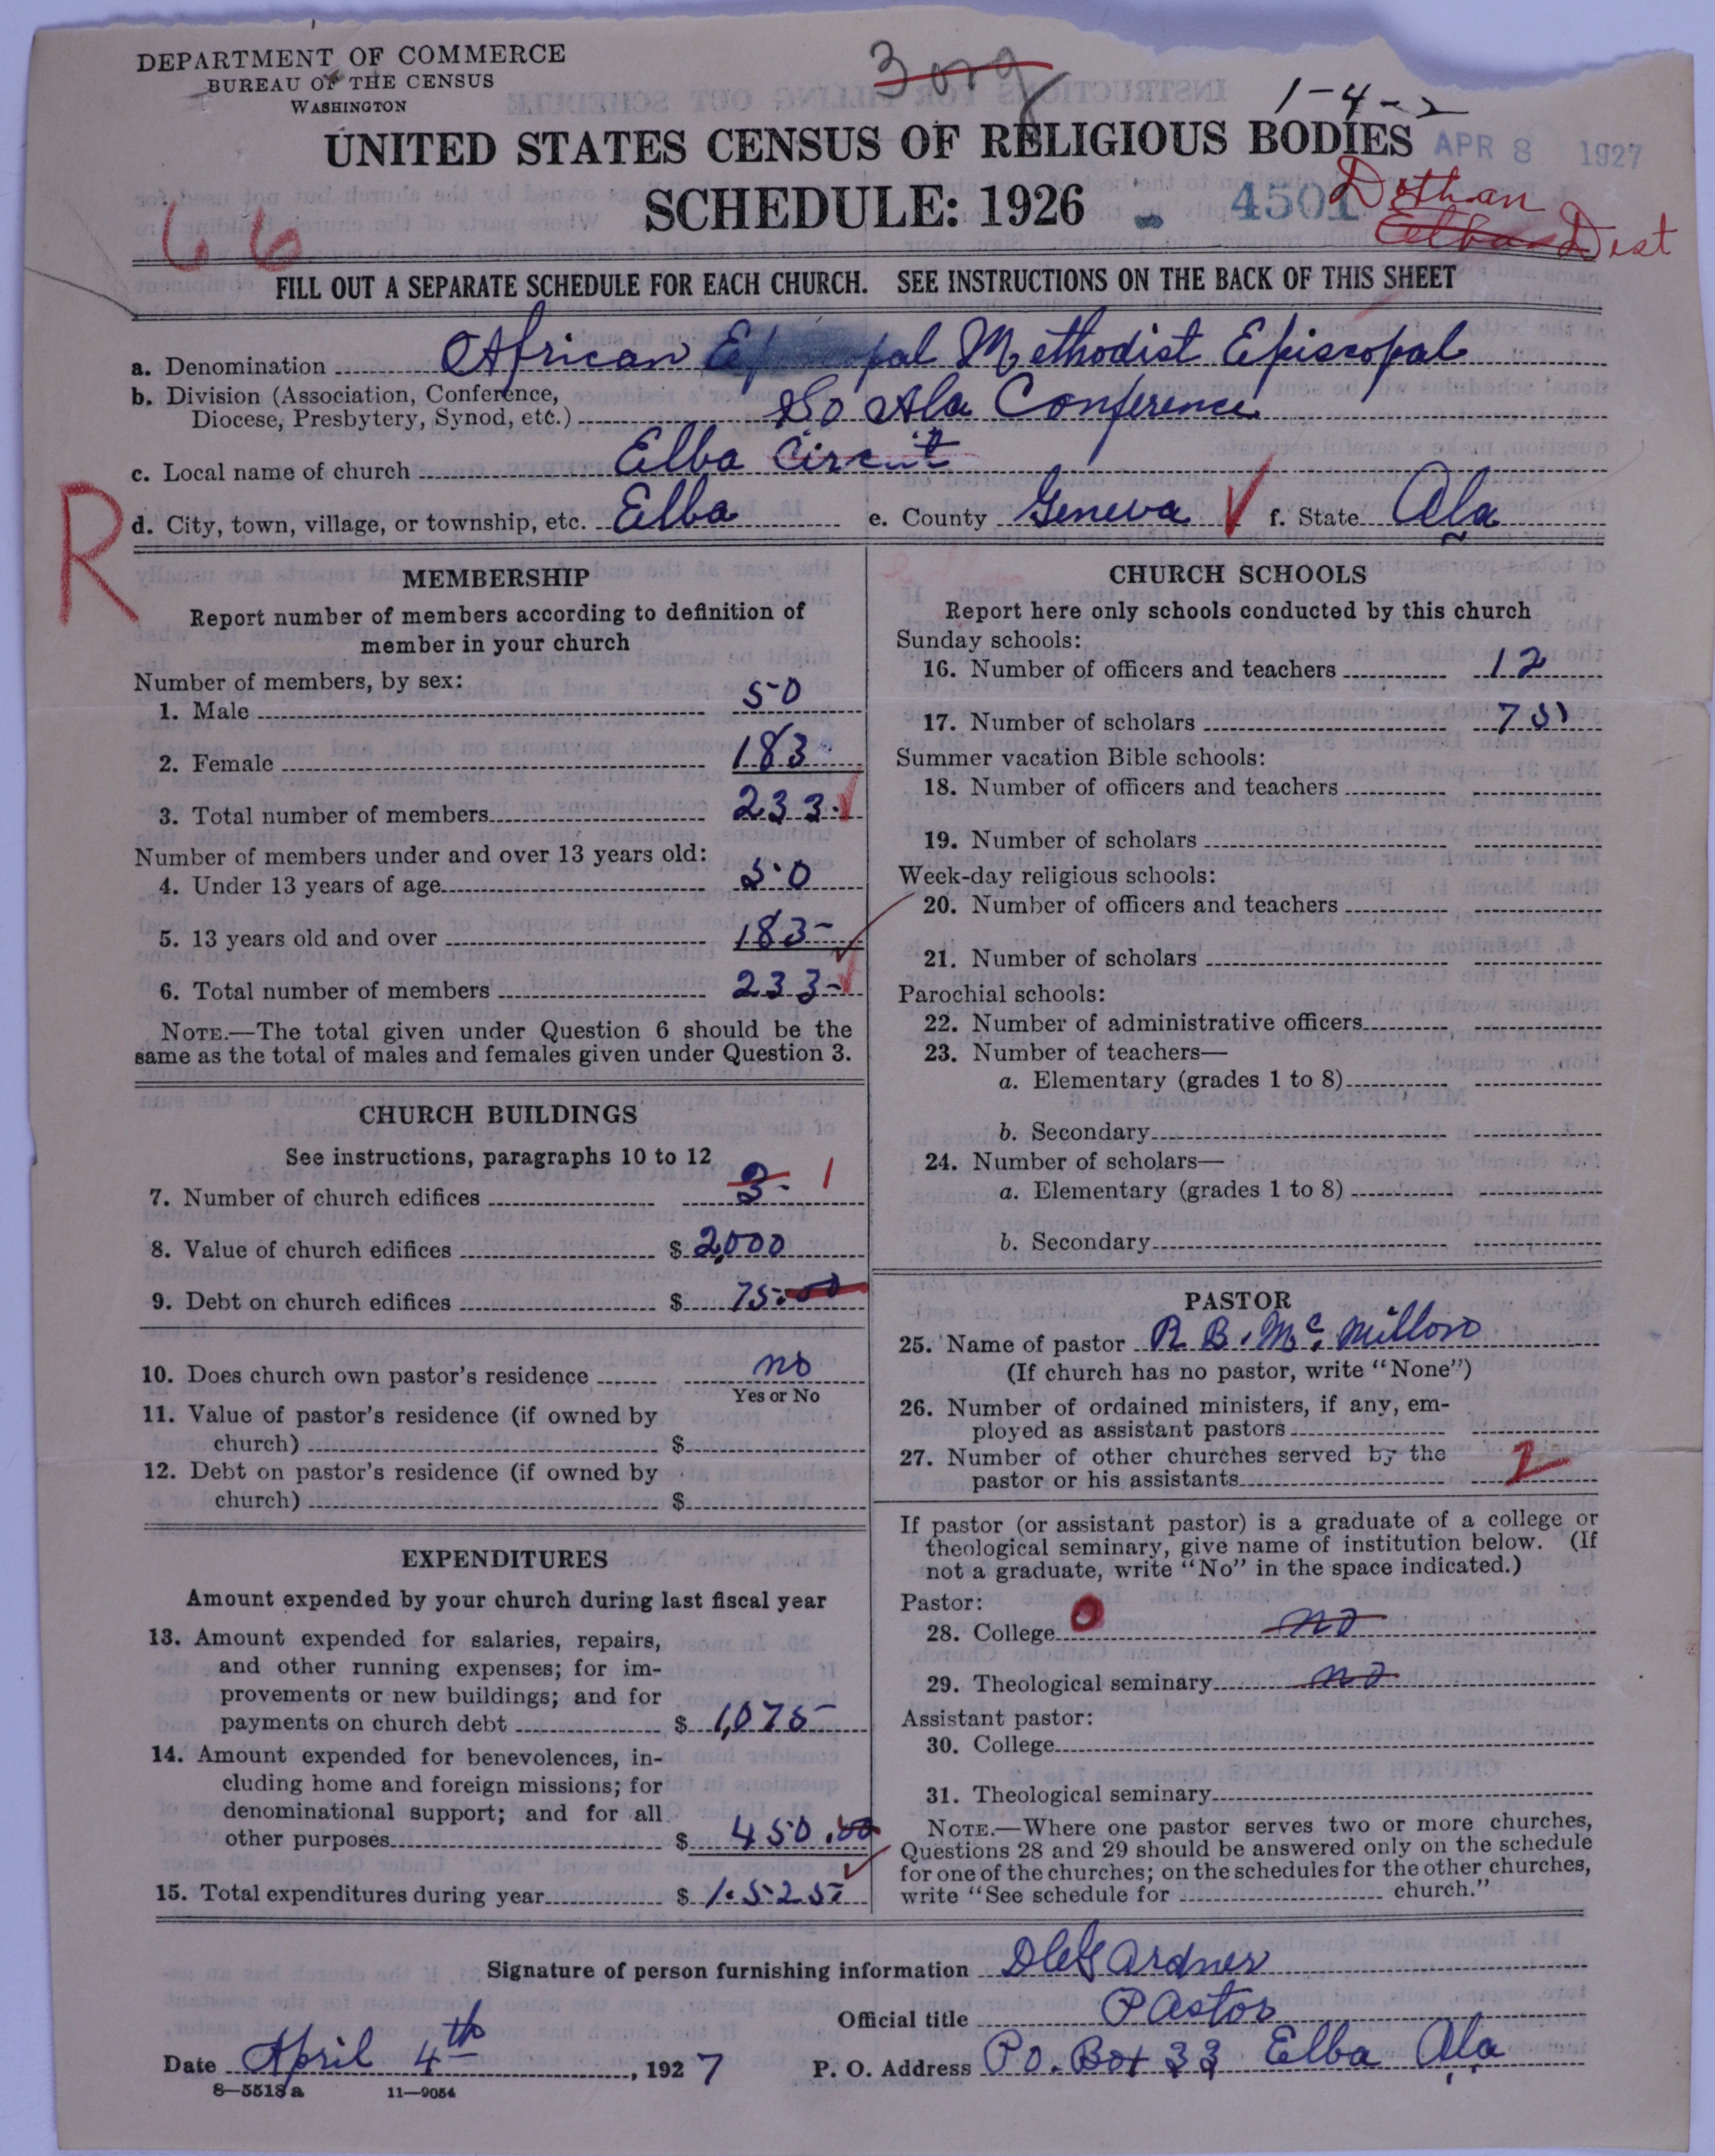 DEPARTMENT OF COMMERCE
BUREAU OF THE CENSUS
WASHINGTON
1-4-2
UNITED STATES CENSUS OF RELIGIOUS BODIES
APR 8 1927
SCHEDULE: 1926
4501
Dothan
Elba Dist
66
FILL OUT A SEPARATE SCHEDULE FOR EACH CHURCH. SEE INSTRUCTIONS ON THE BACK OF THIS SHEET
a. Denomination African Methodist Episcopal
b. Division (Association, Conference,
Diocese, Presbytery, Synod, etc.) So Ala Conference
c. Local name of church Elba Circuit
d. City, town, village, or township, etc. Elba e. County Geneva f. State Ala
R
MEMBERSHIP
Report number of members according to definition of
member in your church
Number of members, by sex:
1. Male 50
2. Female 183
3. Total number of members 233
Number of members under and over 13 years old:
4. Under 13 years of age 50
5. 13 years old and over 183
6. Total number of members 233
NOTE.—The total given under Question 6 should be the
same as the total of males and females given under Question 3.
CHURCH BUILDINGS
See instructions, paragraphs 10 to 12
7. Number of church edifices 3 1
8. Value of church edifices $ 2,000
9. Debt on church edifices $ 75.00
10. Does church own pastor's residence no
Yes or No
11. Value of pastor's residence (if owned by
church) $
12. Debt on pastor's residence (if owned by
church) $
EXPENDITURES
Amount expended by your church during last fiscal year
13. Amount expended for salaries, repairs,
and other running expenses; for im-
provements or new buildings; and for
payments on church debt $ 1,075
14. Amount expended for benevolences, in-
cluding home and foreign missions; for
denominational support; and for all
other purposes $ 450.00
15. Total expenditures during year $ 1.525
CHURCH SCHOOLS
Report here only schools conducted by this church
Sunday schools:
16. Number of officers and teachers 12
17. Number of scholars 75
Summer vacation Bible schools:
18. Number of officers and teachers
19. Number of scholars
Week-day religious schools:
20. Number of officers and teachers
21. Number of scholars
Parochial schools:
22. Number of administrative officers
23. Number of teachers—
a. Elementary (grades 1 to 8)
b. Secondary
24. Number of scholars—
a. Elementary (grades 1 to 8)
b. Secondary
PASTOR
25. Name of pastor R. B. Mc. Millon
(If church has no pastor, write "None")
26. Number of ordained ministers, if any, em-
ployed as assistant pastors
27. Number of other churches served by the
pastor or his assistants 2
If pastor (or assistant pastor) is a graduate of a college or
theological seminary, give name of institution below. (If
not a graduate, write "No" in the space indicated.)
Pastor:
28. College 0 no
29. Theological seminary no
Assistant pastor:
30. College
31. Theological seminary
NOTE.—Where one pastor serves two or more churches,
Questions 28 and 29 should be answered only on the schedule
for one of the churches; on the schedules for the other churches,
write "See schedule for church."
Signature of person furnishing information Gardner
Official title Pastor
Date April 4th, 1927 P. O. Address P.O. Box 33 Elba Ala
8—5518a 11—9054